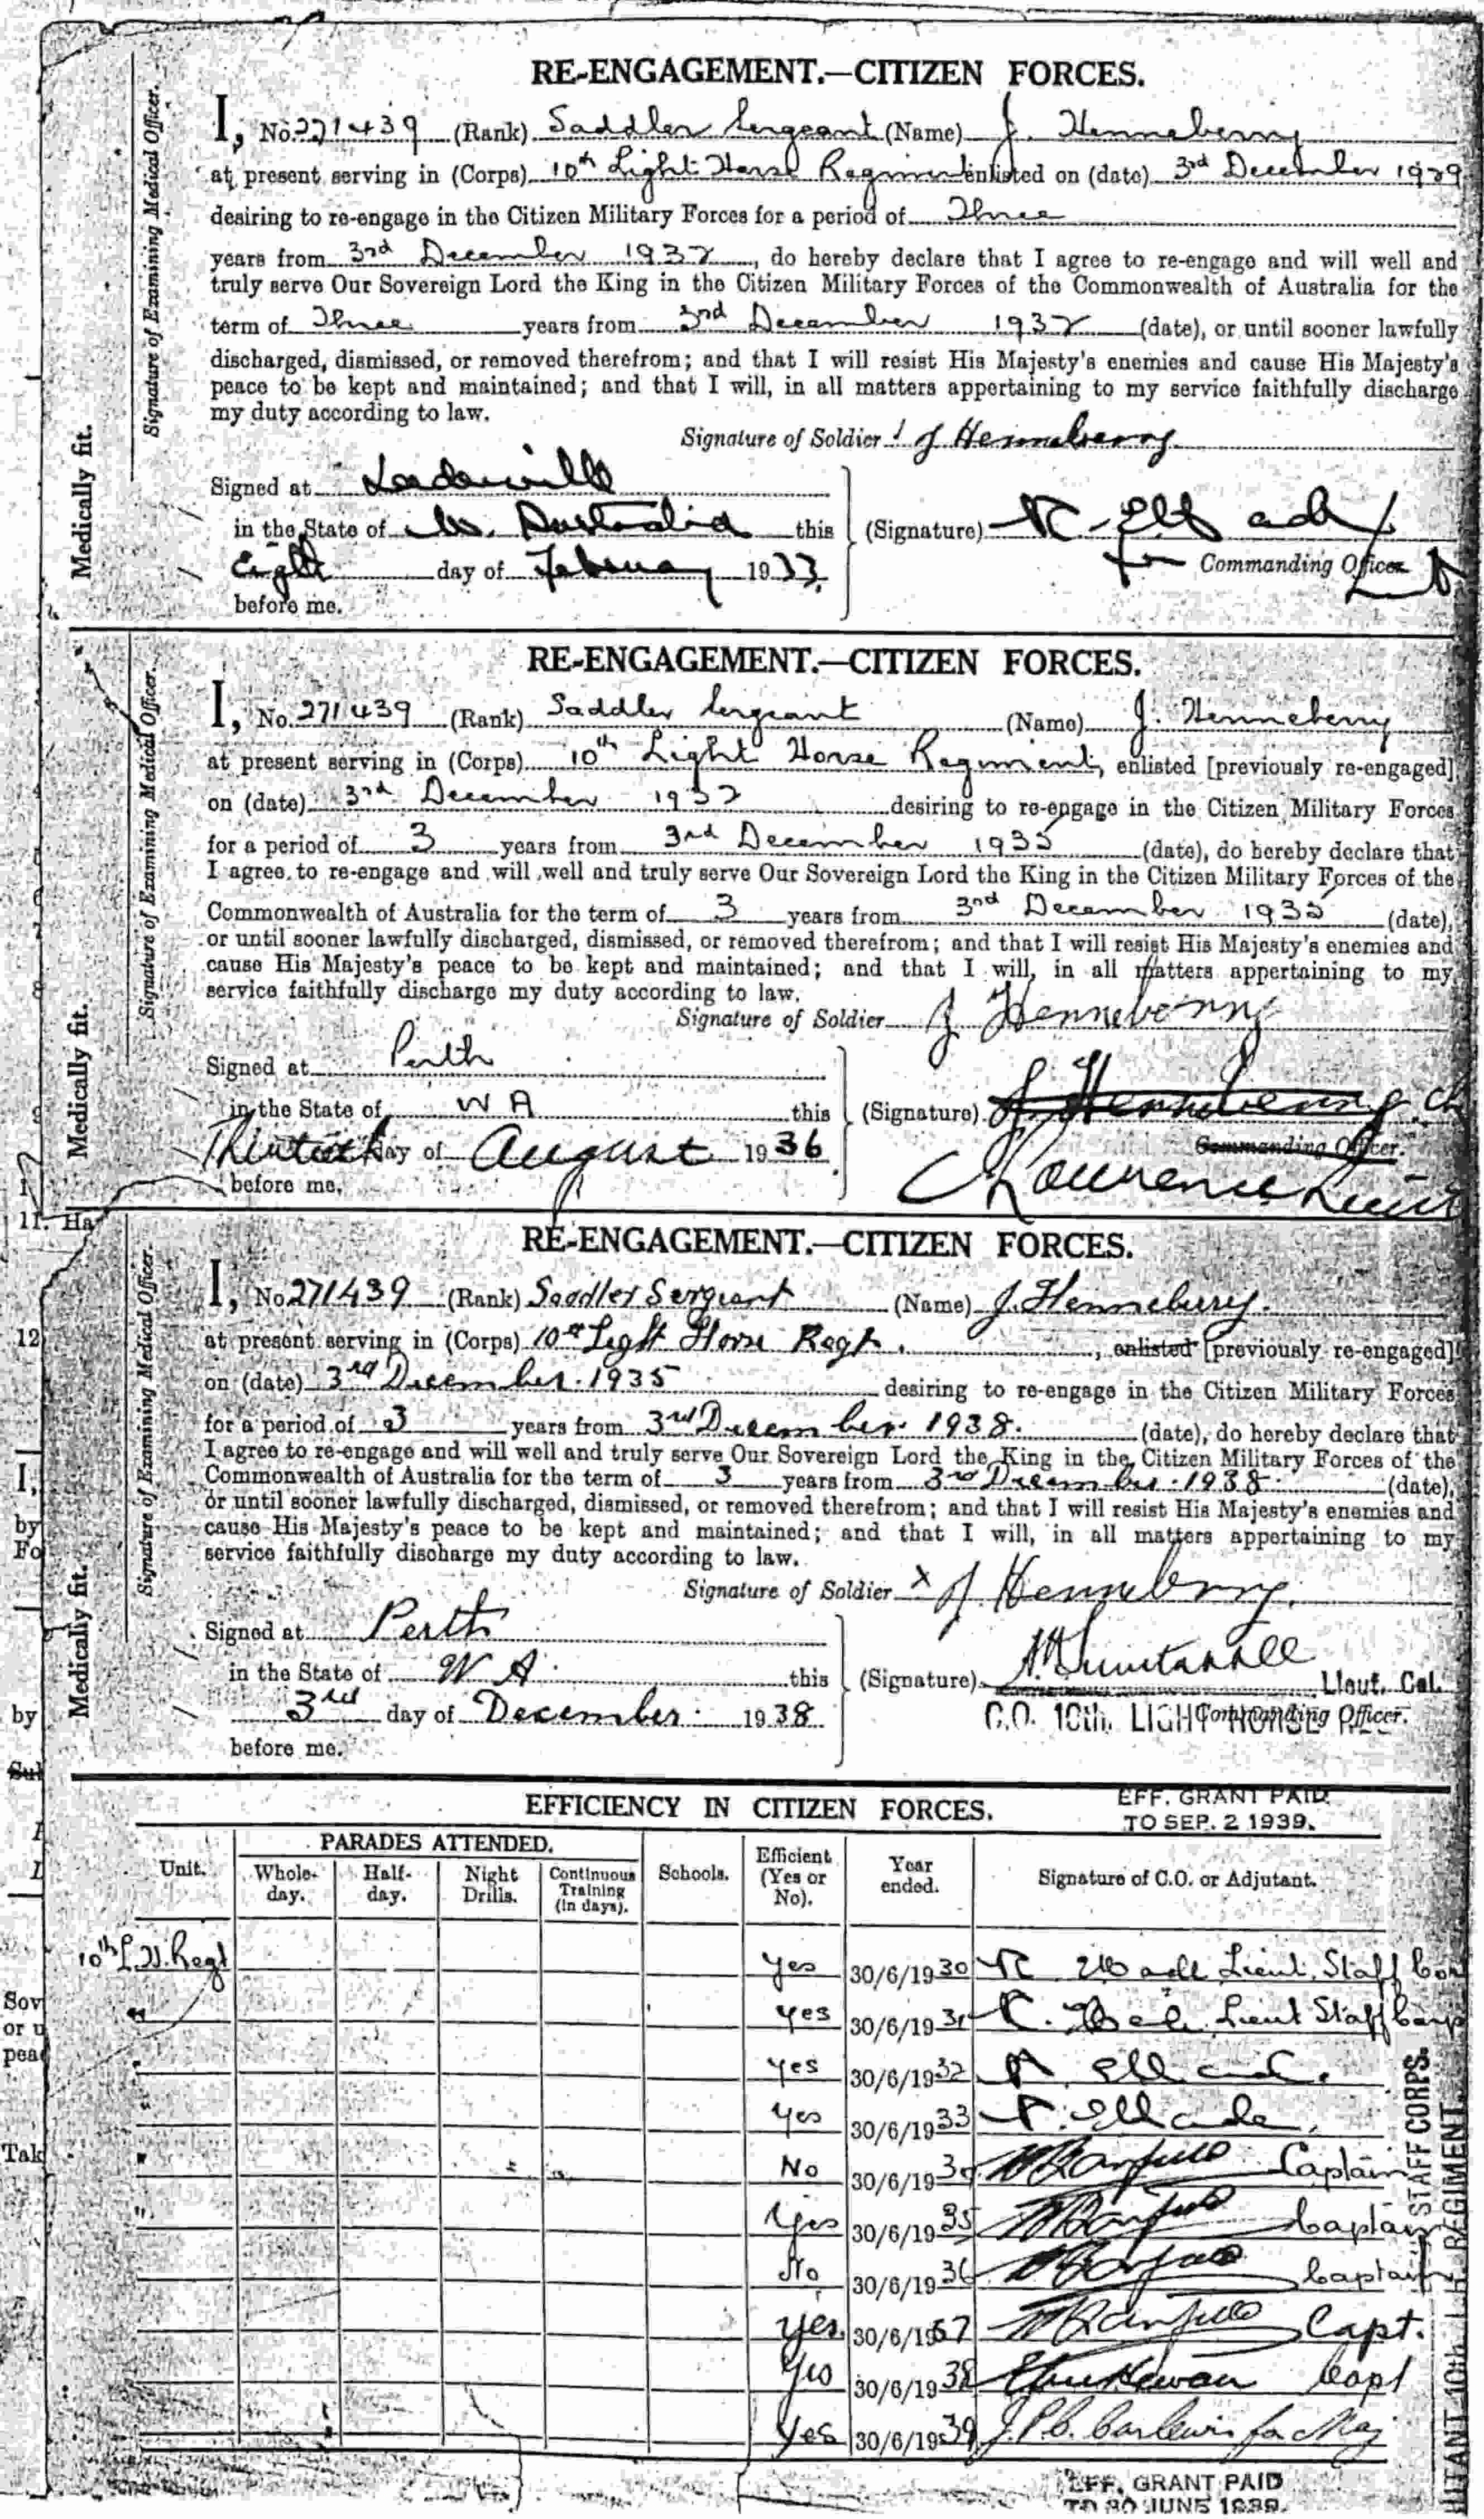 RE-ENGAGEMENT.—CITIZEN FORCES.
I, No. 271439 (Rank) Saddler Sergeant (Name) J. Henneberry
at present serving in (Corps) 10th Light Horse Regiment enlisted on (date) 3rd December 1929
desiring to re-engage in the Citizen Military Forces for a period of Three
years from 3rd December 1932, do hereby declare that I agree to re-engage and will well and
truly serve Our Sovereign Lord the King in the Citizen Military Forces of the Commonwealth of Australia for the
term of Three years from 3rd December 1932 (date), or until sooner lawfully
discharged, dismissed, or removed therefrom; and that I will resist His Majesty's enemies and cause His Majesty's
peace to be kept and maintained; and that I will, in all matters appertaining to my service faithfully discharge
my duty according to law.
Signature of Soldier J Henneberry
Signed at
in the State of W. Australia this (Signature)
Eighth day of February 1933 for Commanding Officer
before me.
Medically fit.
Signature of Examining Medical Officer.
RE-ENGAGEMENT.—CITIZEN FORCES.
I, No. 271439 (Rank) Saddler Sergeant (Name) J. Henneberry
at present serving in (Corps) 10th Light Horse Regiment, enlisted [previously re-engaged]
on (date) 3rd December 1932 desiring to re-engage in the Citizen Military Forces
for a period of 3 years from 3rd December 1935 (date), do hereby declare that
I agree to re-engage and will well and truly serve Our Sovereign Lord the King in the Citizen Military Forces of the
Commonwealth of Australia for the term of 3 years from 3rd December 1935 (date),
or until sooner lawfully discharged, dismissed, or removed therefrom; and that I will resist His Majesty's enemies and
cause His Majesty's peace to be kept and maintained; and that I will, in all matters appertaining to my
service faithfully discharge my duty according to law.
Signature of Soldier J Henneberry
Signed at Perth
in the State of W A this (Signature) J Henneberry
day of August 1936 Commanding Officer.
before me. Lawrence Lieut
Medically fit.
Signature of Examining Medical Officer.
RE-ENGAGEMENT.—CITIZEN FORCES.
I, No 271439 (Rank) Saddler Sergeant (Name) J. Henneberry.
at present serving in (Corps) 10th Light Horse Regt., enlisted [previously re-engaged]
on (date) 3rd December 1935 desiring to re-engage in the Citizen Military Forces
for a period of 3 years from 3rd December 1938. (date), do hereby declare that
I agree to re-engage and will well and truly serve Our Sovereign Lord the King in the Citizen Military Forces of the
Commonwealth of Australia for the term of 3 years from 3rd December 1938 (date),
or until sooner lawfully discharged, dismissed, or removed therefrom; and that I will resist His Majesty's enemies and
cause His Majesty's peace to be kept and maintained; and that I will, in all matters appertaining to my
service faithfully discharge my duty according to law.
Signature of Soldier x J Henneberry.
Signed at Perth
in the State of W A this (Signature) Lieut. Col.
3rd day of December 1938 C.O. 10th. LIGHT HORSE Commanding Officer.
before me.
Medically fit.
Signature of Examining Medical Officer.
EFFICIENCY IN CITIZEN FORCES.
EFF. GRANT PAID
TO SEP. 2 1939.
Unit. PARADES ATTENDED. Schools. Efficient (Yes or No). Year ended. Signature of C.O. or Adjutant.
Whole-day. Half-day. Night Drills. Continuous Training (in days).
10th L.H. Regt Yes 30/6/1930 Lieut. Staff Corps
" Yes 30/6/1931 Lieut Staff Corps
" Yes 30/6/1932
" Yes 30/6/1933
" No 30/6/1934 Captain
" Yes 30/6/1935 Captain
No 30/6/1936 Captain
Yes. 30/6/1937 Capt.
Yes 30/6/1938 Capt
" Yes 30/6/1939 for Maj
STAFF CORPS.
ADJUTANT 10th L.H. REGIMENT.
EFF. GRANT PAID
TO 30 JUNE 1939.